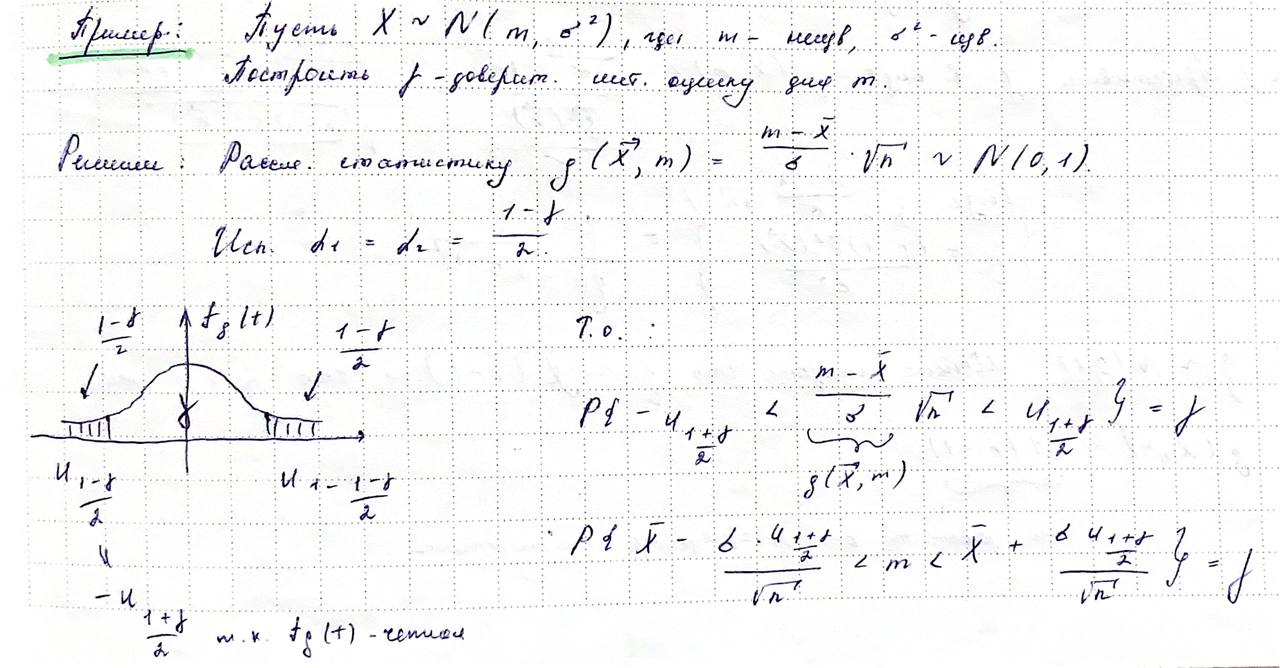 Пример: Пусть X ~ N(m, σ²), где m - неизв, σ² - изв.
Построить γ - доверит. инт. оценку для m.
Решение: Рассм. статистику g(X⃗, m) = (m - X̄)/σ · √n ~ N(0,1).
Исп. α₁ = α₂ = (1-γ)/2.
f_g(t)
(1-γ)/2
(1-γ)/2
γ
u_{(1-γ)/2}
u_{1 - (1-γ)/2}
"
-u_{(1+γ)/2} т.к. f_g(t) - четная
Т.о. :
P{ -u_{(1+γ)/2} < (m - X̄)/σ √n < u_{(1+γ)/2} } = γ
g(X⃗, m)
P{ X̄ - (σ · u_{(1+γ)/2})/√n < m < X̄ + (σ u_{(1+γ)/2})/√n } = γ